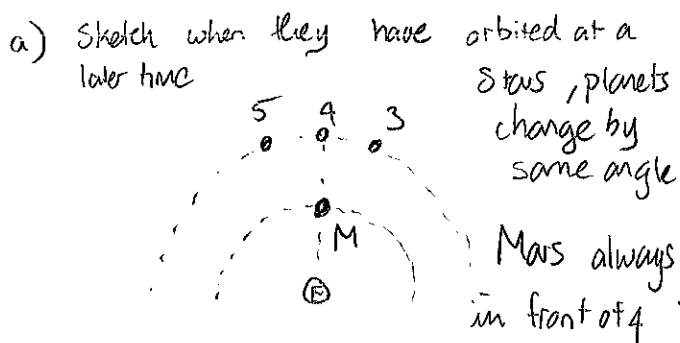 a) Sketch when they have orbited at a
later time
Stars, planets
change by
same angle
5 4 3
M
Mars always
in front of 4
E